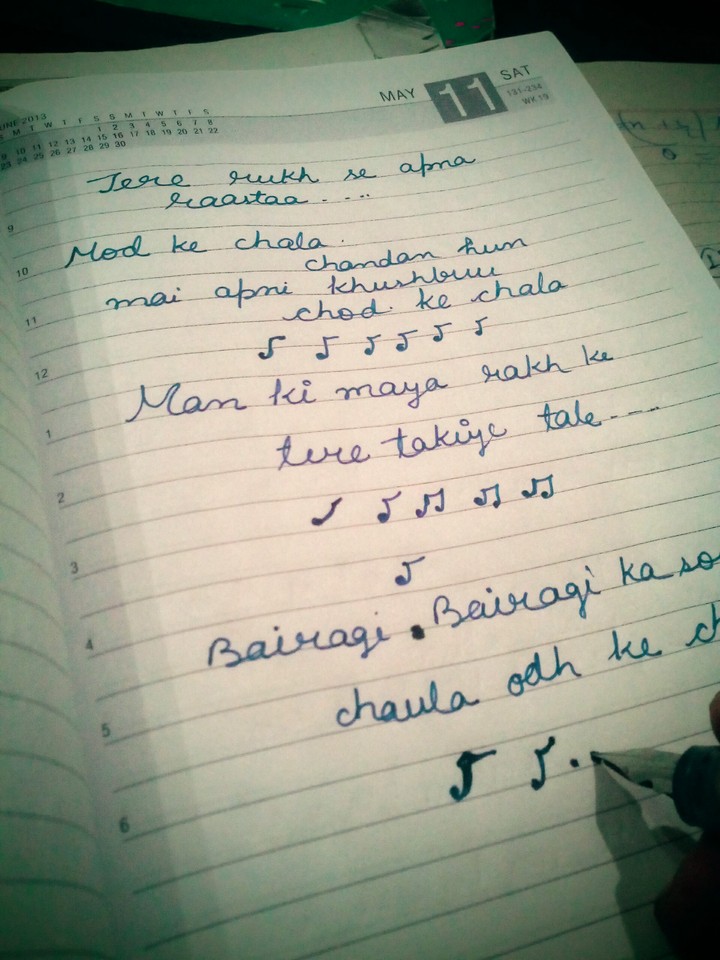 UNE 2013
S M T W T F S S M T W T F S
1 2 3 4 5 6 7 8
9 10 11 12 13 14 15 16 17 18 19 20 21 22
23 24 25 26 27 28 29 30
MAY 11 SAT
131-234
WK 19
Tere rukh se apna
raastaa ....
9
Mod ke chala.
10
chandan hun
mai apni khushbuu
11
chod. ke chala
12
Man ki maya rakh ke
1
tere takiye tale ----
2
3
Bairagi . Bairagi ka so
4
chaula odh ke ch
5
6